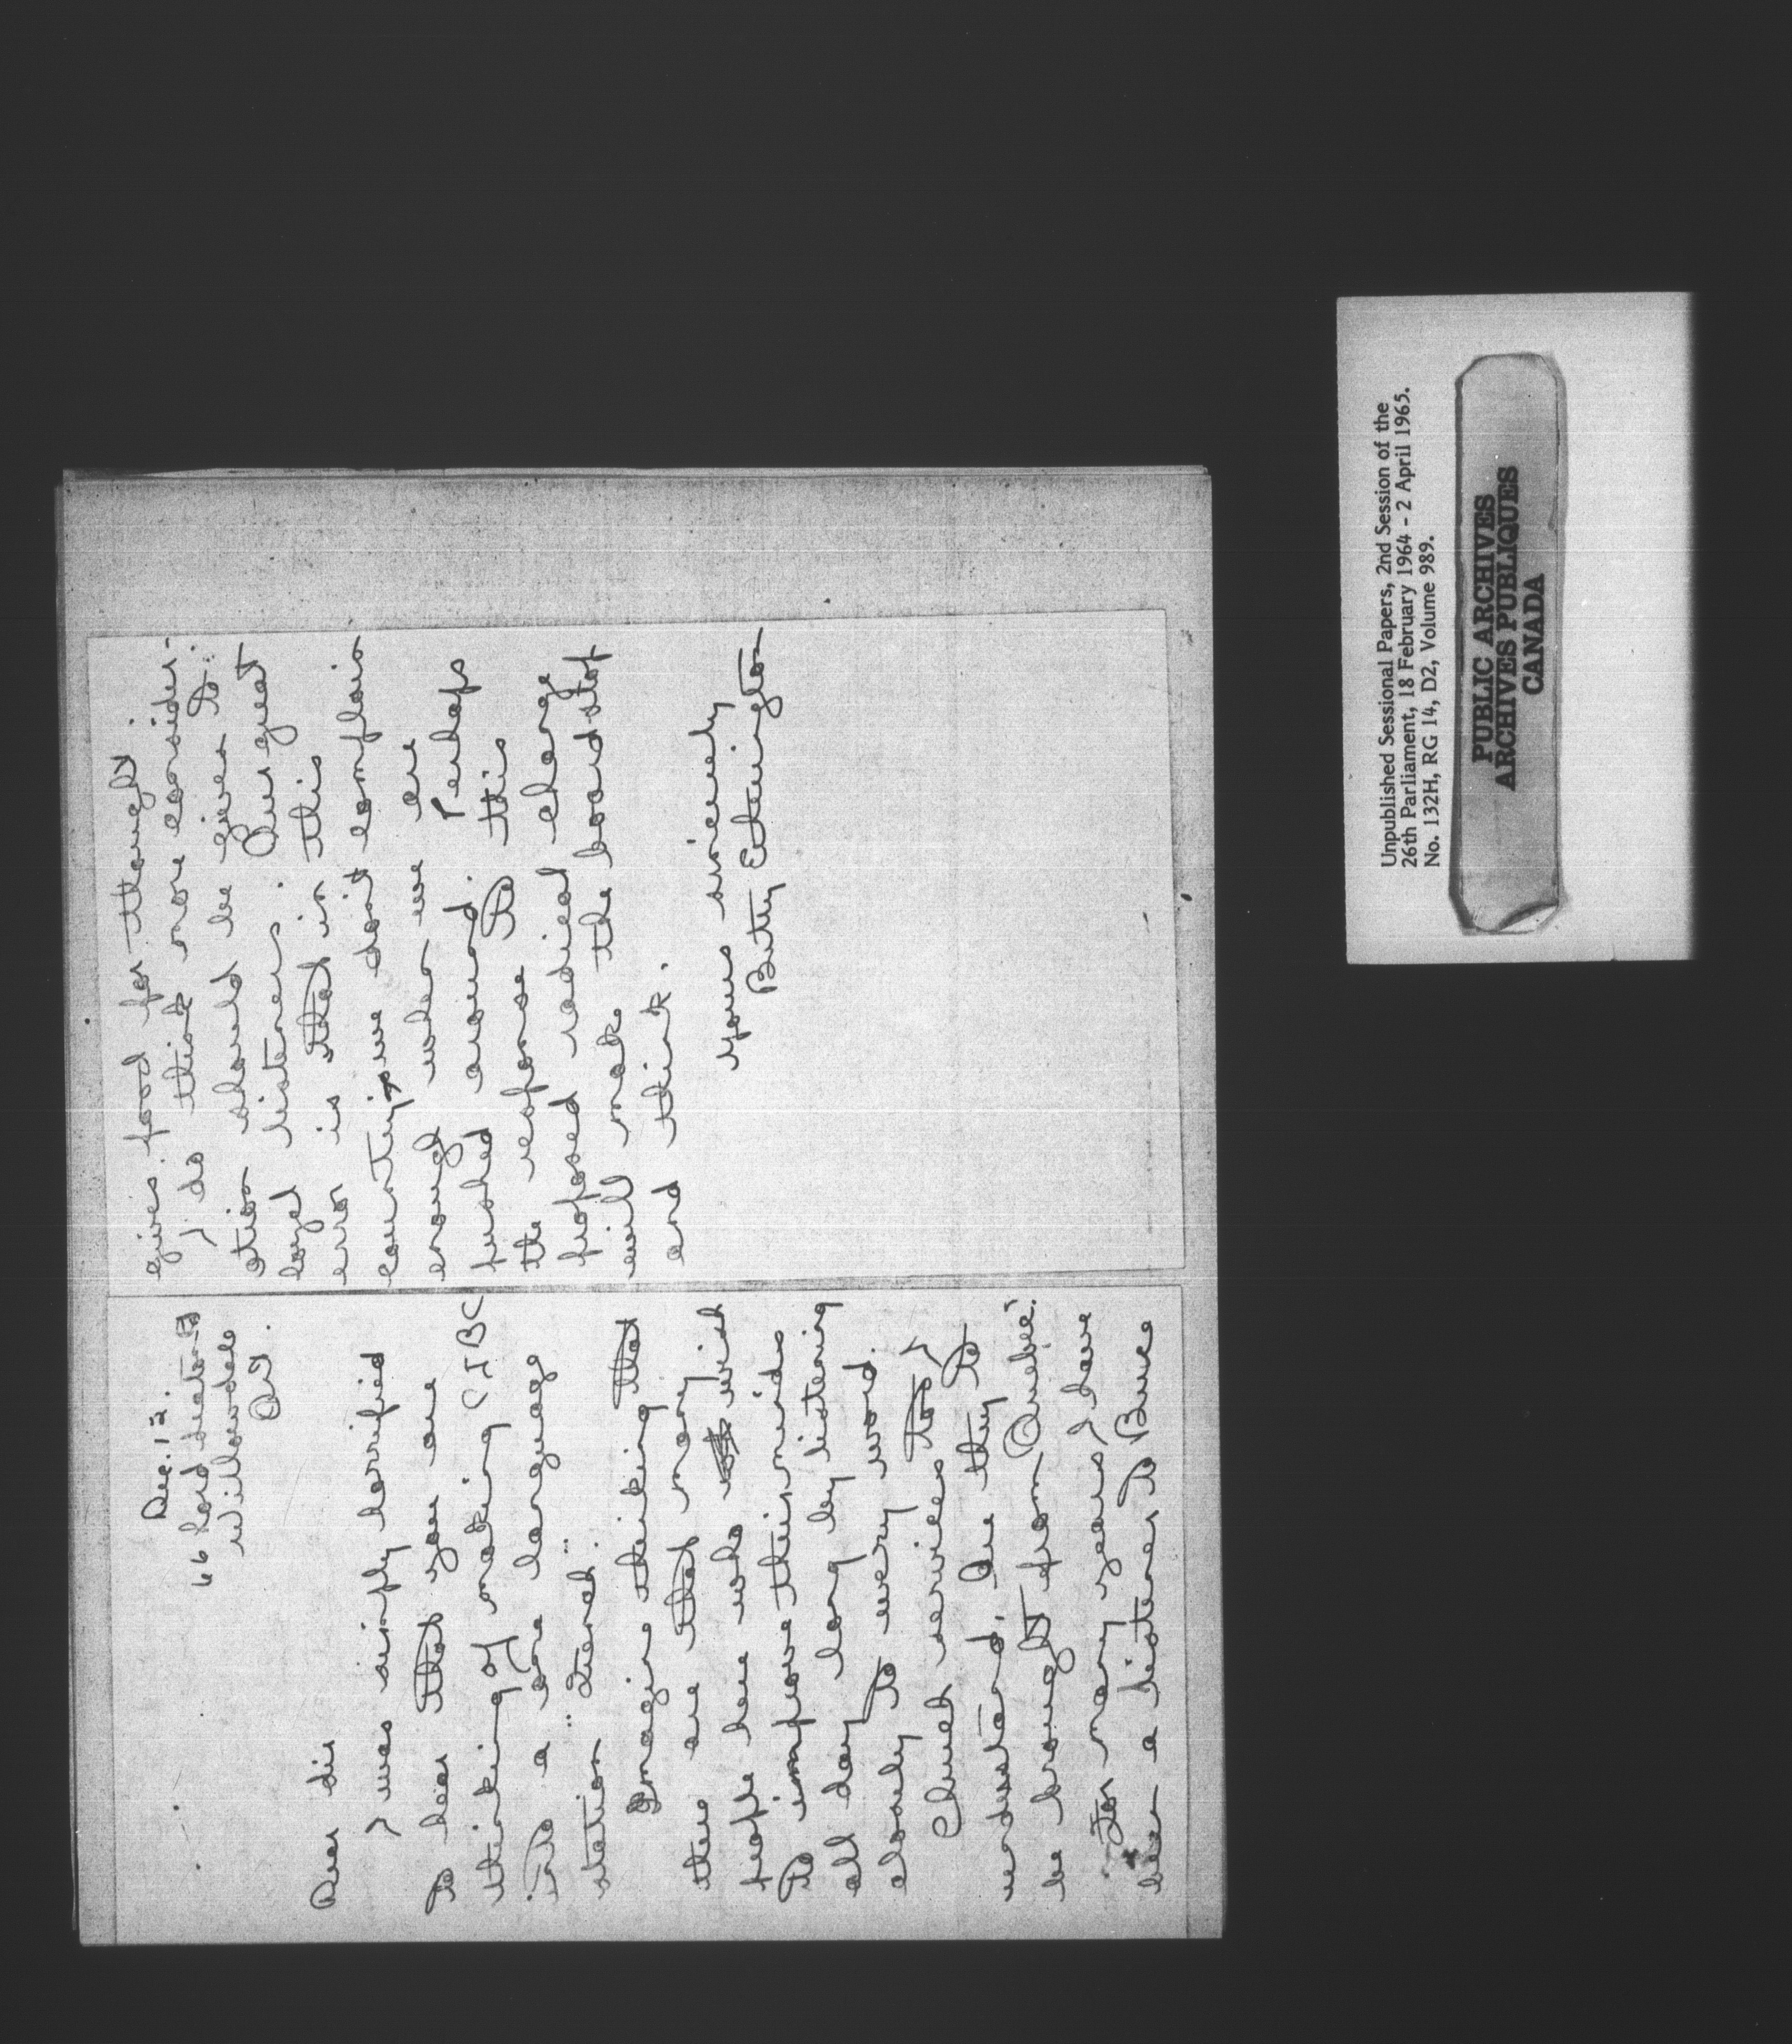 Dec. 12.
66 Lord Seaton Rd
Willowdale
Ont.
Dear Sir
I was simply horrified
to hear that you are
thinking of making CJBC
into a one language
station "French".
Imagine thinking that
there are that many
people here who wish
to improve their minds
all day long by listening
closely to every word.
Church services too, I
understand, are they to
be brought from Quebec?
For many years I have
been a listener to Bruce
gives food for thought.
I do think more consider-
ation should be given to
loyal listeners. Our great
error is that in this
country, we don't complain
enough when we are
pushed around. Perhaps
the response to this
proposed radical change
will make the board stop
and think.
yours sincerely
Betty Etherington
Unpublished Sessional Papers, 2nd Session of the
26th Parliament, 18 February 1964 - 2 April 1965.
No. 132H, RG 14, D2, Volume 989.
PUBLIC ARCHIVES
ARCHIVES PUBLIQUES
CANADA